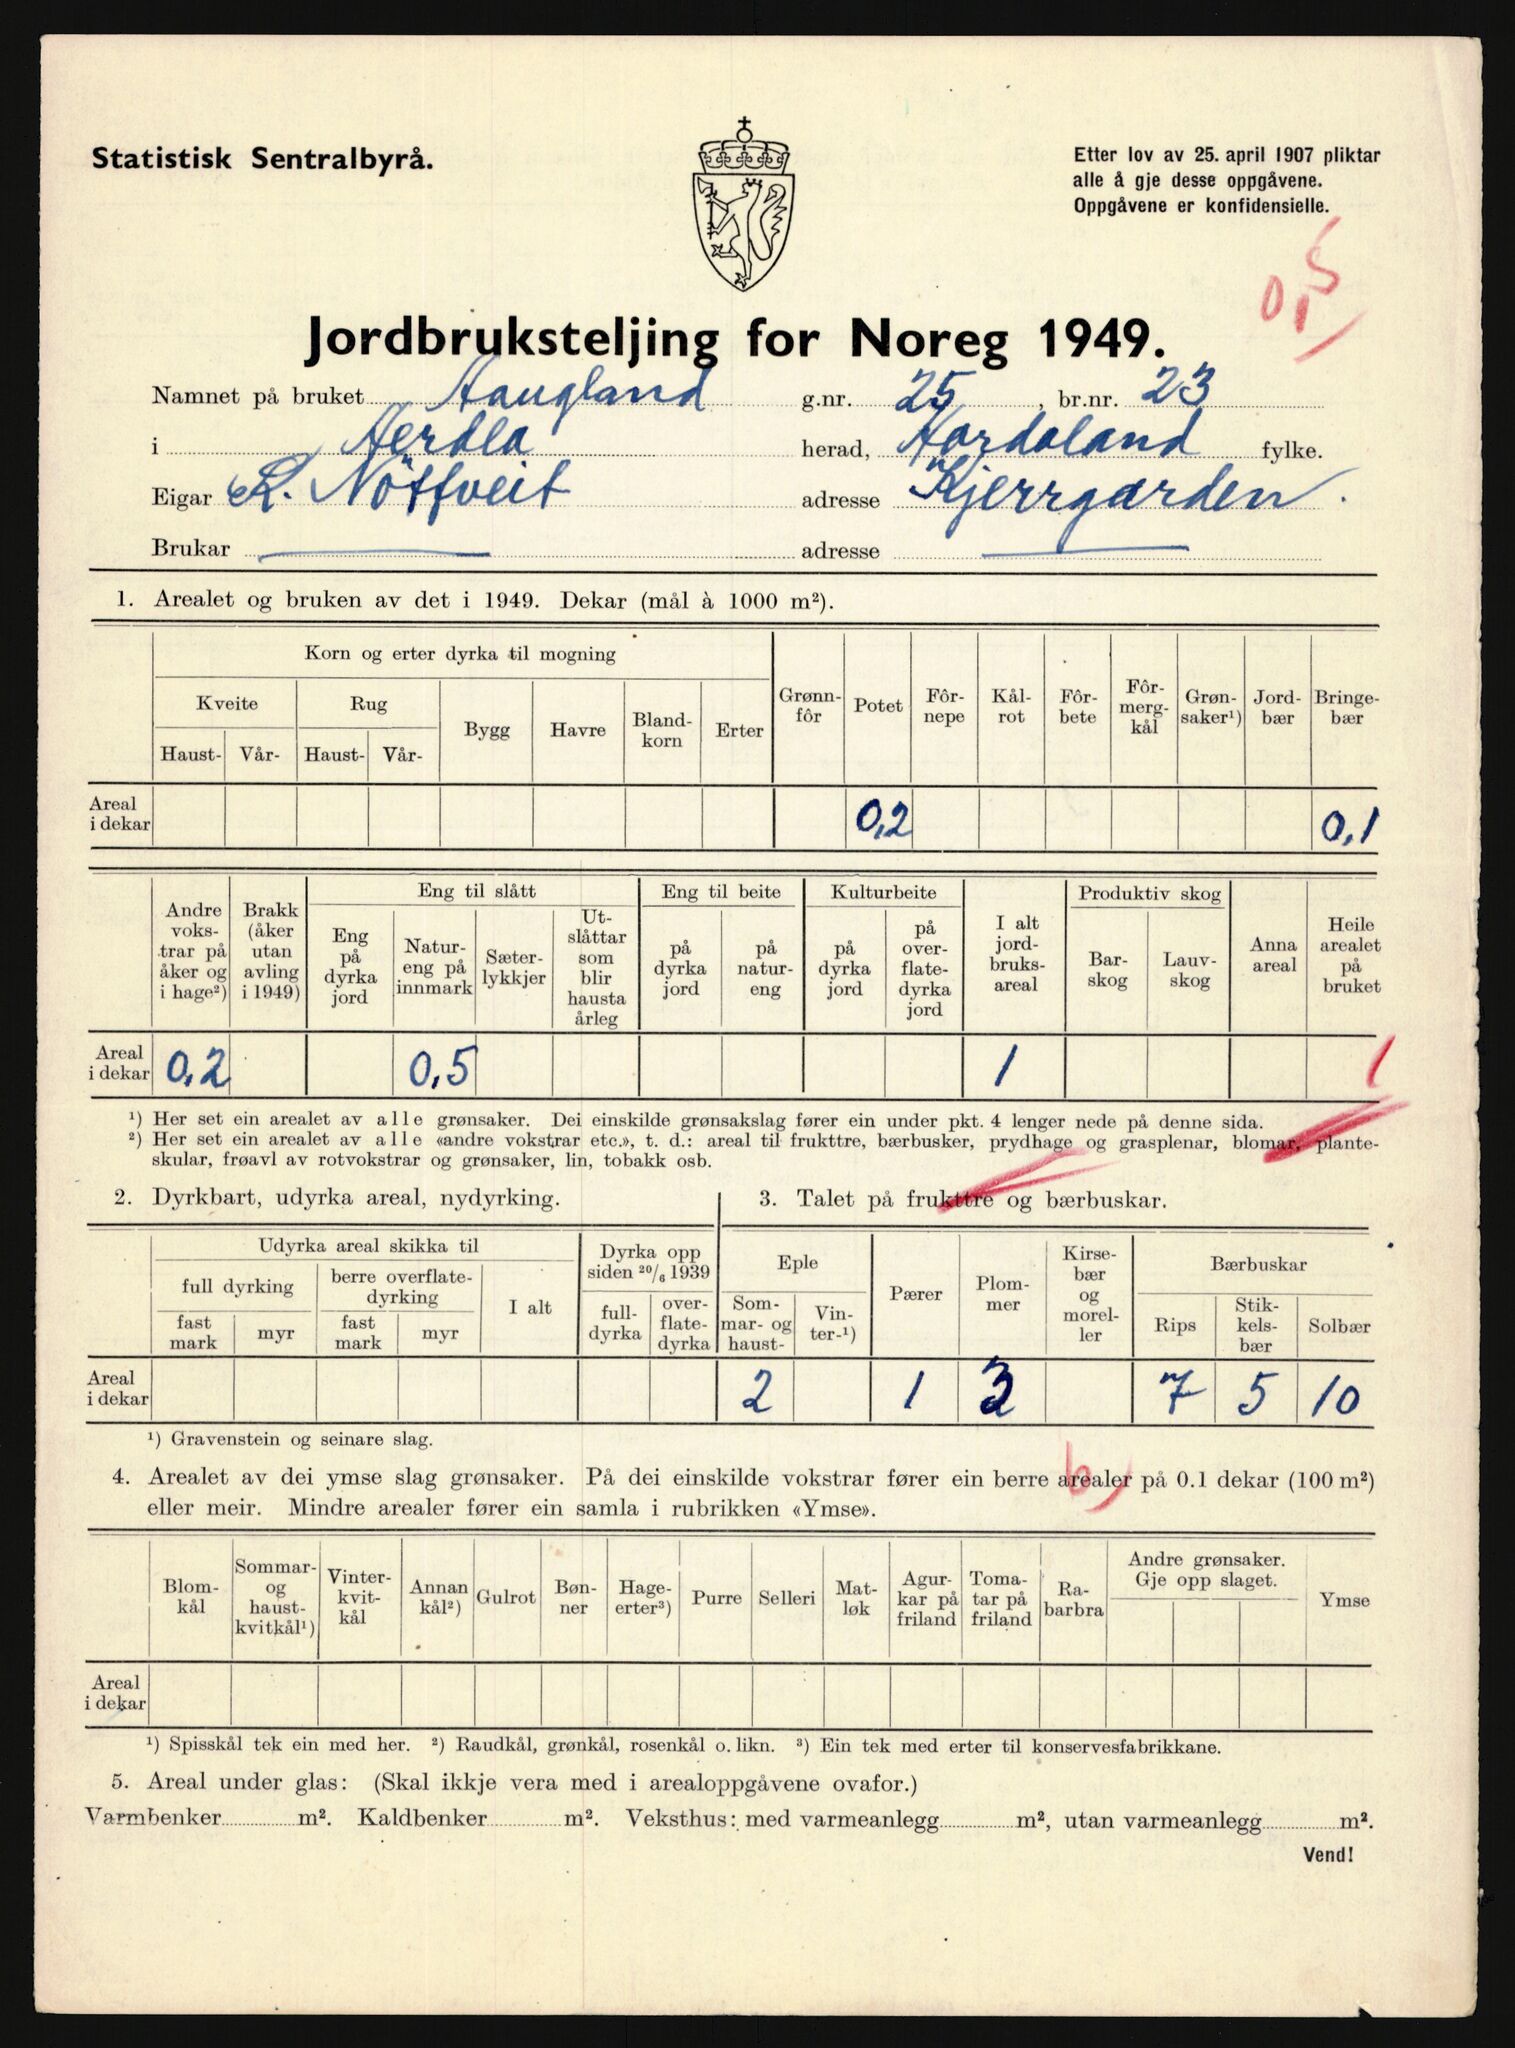 Statistisk Sentralbyrå.
Etter lov av 25. april 1907 pliktar
alle å gje desse oppgåvene.
Oppgåvene er konfidensielle.
0,5
Jordbruksteljing for Noreg 1949.
Namnet på bruket Haugland g.nr. 25, br.nr. 23
i Herdla herad, Hordaland fylke.
Eigar L. Nöttveit adresse Kjerrgarden.
Brukar adresse
1. Arealet og bruken av det i 1949. Dekar (mål à 1000 m²).
Korn og erter dyrka til mogning
Kveite Rug Bygg Havre Bland-korn Erter Grønn-fôr Potet Fôr-nepe Kål-rot Fôr-bete Fôr-merg-kål Grøn-saker¹) Jord-bær Bringe-bær
Haust- Vår- Haust- Vår-
Areal i dekar 0,2 0,1
Eng til slått Eng til beite Kulturbeite Produktiv skog
Andre voks-trar på åker og i hage²) Brakk (åker utan avling i 1949) Eng på dyrka jord Natur-eng på innmark Sæter-lykkjer Ut-slåttar som blir hausta årleg på dyrka jord på natur-eng på dyrka jord på over-flate-dyrka jord I alt jord-bruks-areal Bar-skog Lauv-skog Anna areal Heile arealet på bruket
Areal i dekar 0,2 0,5 1 1
¹) Her set ein arealet av alle grønsaker. Dei einskilde grønsakslag fører ein under pkt. 4 lenger nede på denne sida.
²) Her set ein arealet av alle «andre vokstrar etc.», t. d.: areal til frukttre, bærbusker, prydhage og grasplenar, blomar, plante-
skular, frøavl av rotvokstrar og grønsaker, lin, tobakk osb.
2. Dyrkbart, udyrka areal, nydyrking.
3. Talet på frukttre og bærbuskar.
Udyrka areal skikka til Dyrka opp siden 20/6 1939 Eple Pærer Plom-mer Kirse-bær og morel-ler Bærbuskar
full dyrking berre overflate-dyrking I alt full-dyrka over-flate-dyrka Som-mar- og haust- Vin-ter-¹) Rips Stik-kels-bær Solbær
fast mark myr fast mark myr
Areal i dekar 2 1 3 7 5 10
¹) Gravenstein og seinare slag.
b)
4. Arealet av dei ymse slag grønsaker. På dei einskilde vokstrar fører ein berre arealer på 0.1 dekar (100 m²)
eller meir. Mindre arealer fører ein samla i rubrikken «Ymse».
Blom-kål Sommar- og haust-kvitkål¹) Vinter-kvit-kål Annan kål²) Gulrot Bøn-ner Hage-erter³) Purre Selleri Mat-løk Agur-kar på friland Toma-tar på friland Ra-barbra Andre grønsaker. Gje opp slaget. Ymse
Areal i dekar
¹) Spisskål tek ein med her. ²) Raudkål, grønkål, rosenkål o. likn. ³) Ein tek med erter til konservesfabrikkane.
5. Areal under glas: (Skal ikkje vera med i arealoppgåvene ovafor.)
Varmbenker m². Kaldbenker m². Veksthus: med varmeanlegg m², utan varmeanlegg m².
Vend!